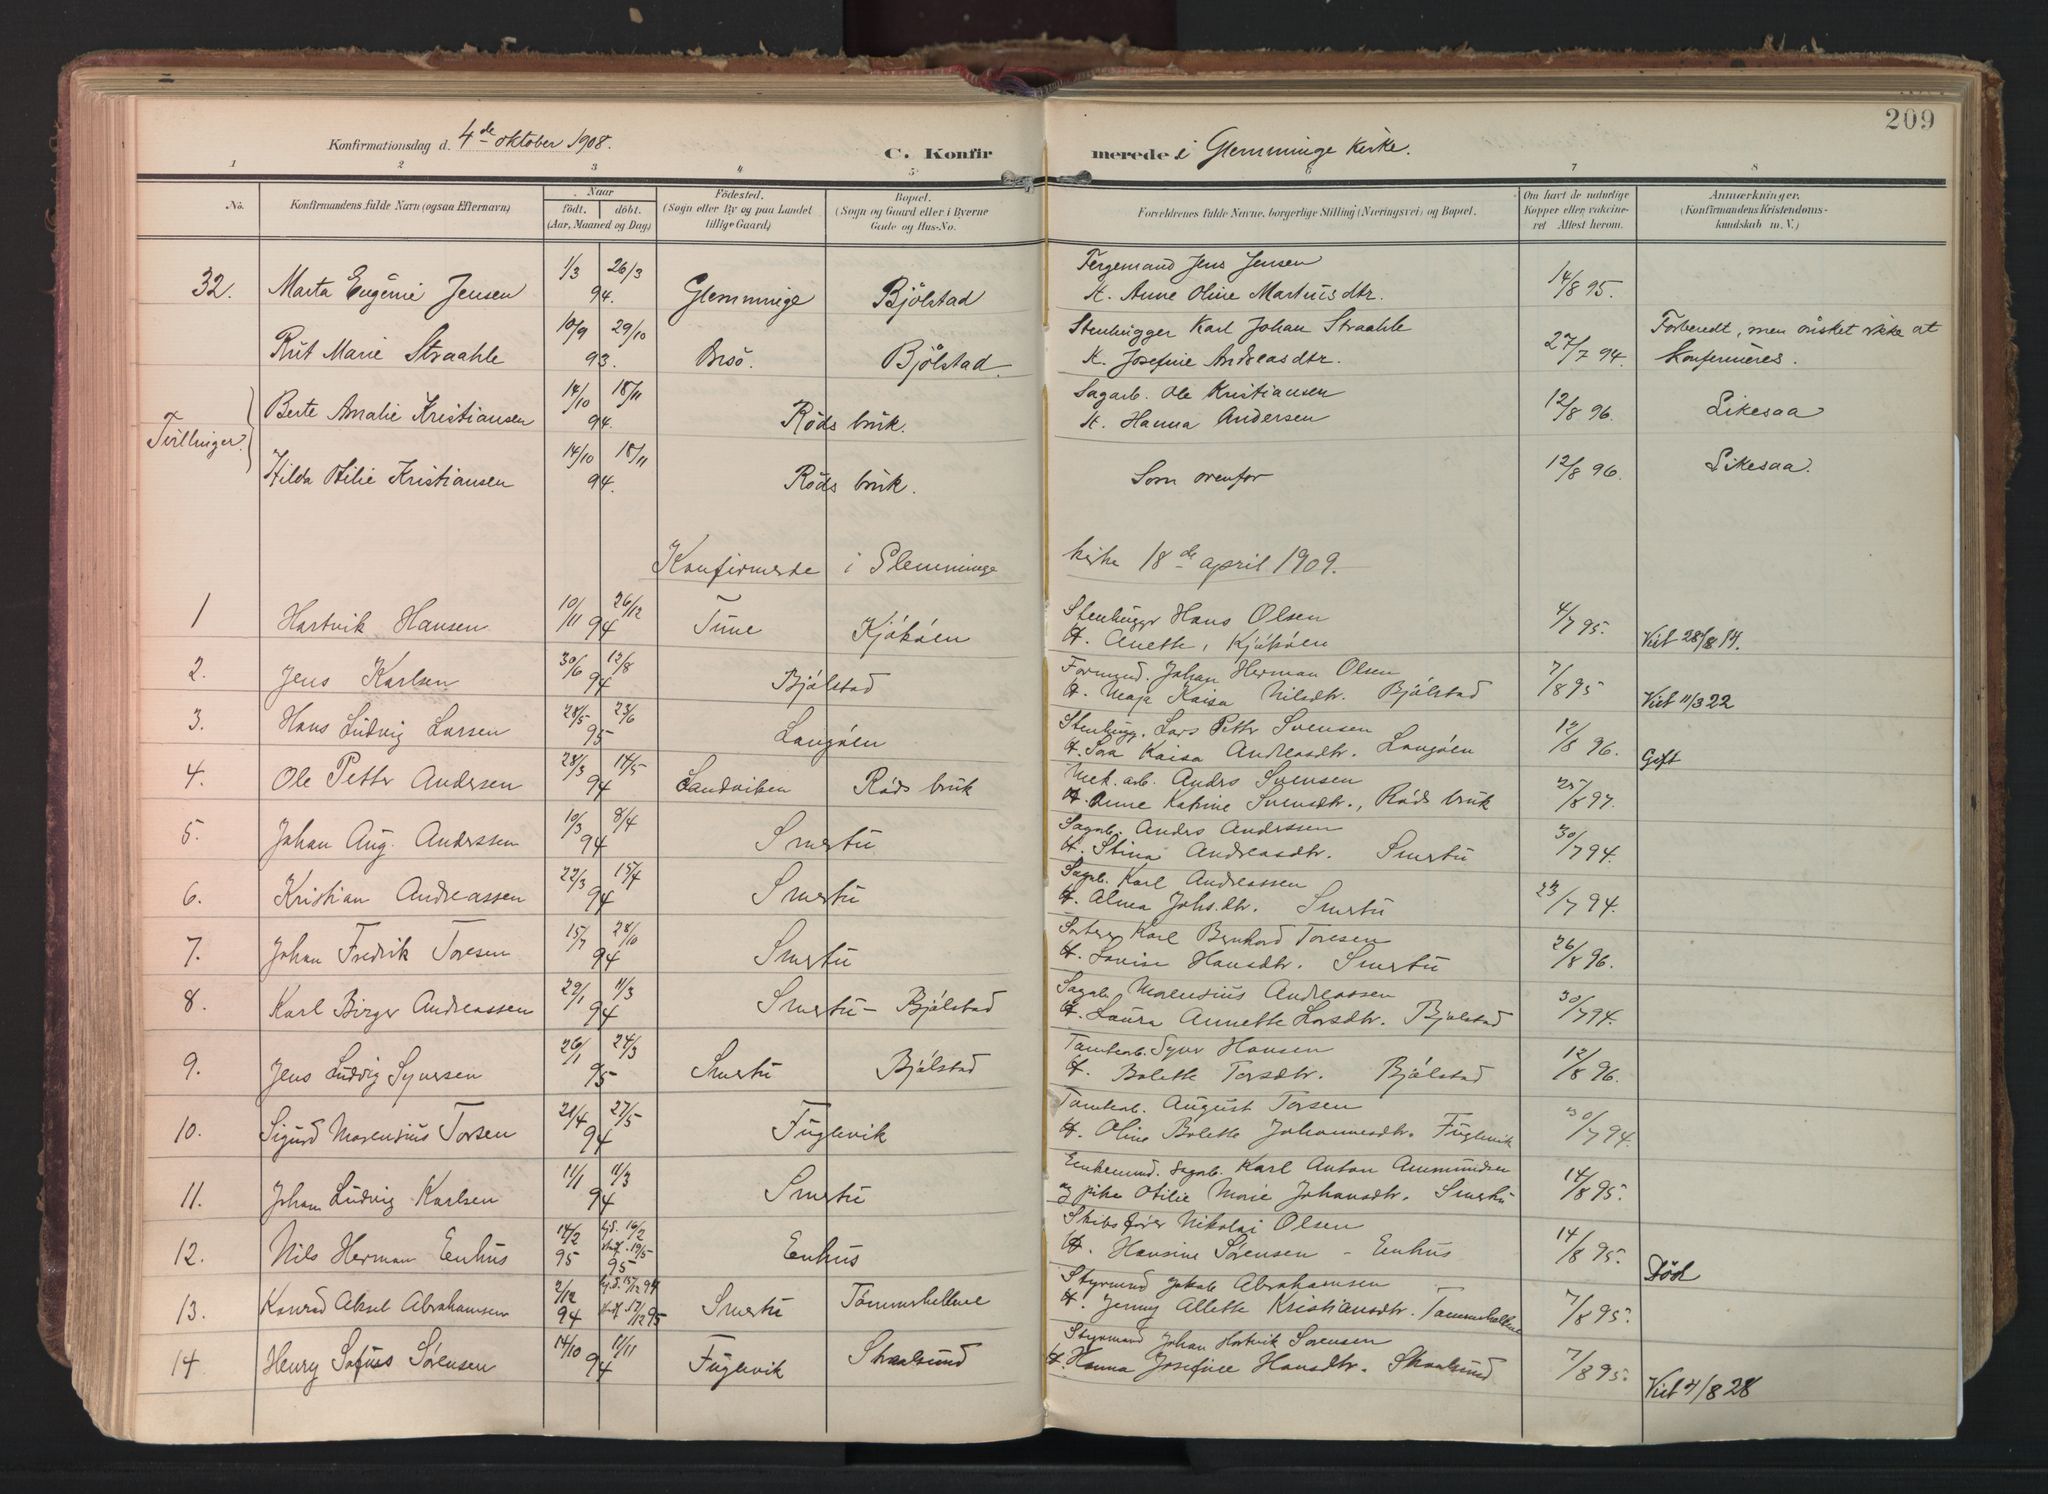 209
Konfirmationsdag d. 4de oktober 1908. C. Konfirmerede i Glemminge kirke.
1 2 3 4 5 6 7 8
No. Konfirmandens fulde Navn (ogsaa Efternavn) Naar født. døbt. (Aar, Maaned og Dag) Fødested. (Sogn eller By og paa Landet tillige Gaard) Bopæl. (Sogn og Gaard eller i Byerne Gade og Hus-No. Forældrenes fulde Navne, borgerlige Stilling (Næringsvei) og Bopæl. Om havt de naturlige Kopper eller vakcineret Attest herom. Anmærkninger. (Konfirmandens Kristendomskundskab m. V.)
32. Marta Eugenie Jensen 1/3 26/3 94. Glemminge Bjølstad Fergemand Jens Jensen
H. Anne Oline Martinsdtr. 14/8 95.
Rut Marie Straahle 10/9 29/10 93. Onsø. Bjølstad. Stenhugger Karl Johan Straahle
H. Josefine Andreasdtr. 27/7 94. Forberedt, men ønsket ikke at konfirmeres.
Tvillinger. Berte Amalie Kristiansen 14/10 18/11 94. Røds bruk. Sagarb. Ole Kristiansen
H. Hanna Andersen 12/8 96. Likesaa
Hilda Otilie Kristiansen 14/10 18/11 94. Røds bruk. Som ovenfor 12/8 96. Likesaa.
Konfirmerte i Glemminge kirke 18de april 1909.
1 Hartvik Hansen 10/11 26/12 94 Tune Kjøkøen Stenhuggr Hans Olsen
H. Anette, Kjøkøen 4/7 95. Vist 28/8 14.
2. Jens Karlsen 30/6 12/8 94 Bjølstad Formand. Johan Herman Olsen
H. Maja Kaisa Nilsdtr. Bjølstad 7/8 95 Vist 11/3 22
3. Hans Ludvig Larsen 28/5 23/6 95 Langøen Stenhugg. Lars Petter Svensen
H. Sara Kaisa Andreasdtr. Langøen 12/8 96. Gift
4. Ole Petter Andersen 28/3 14/5 94 Sandviken Røds bruk Mek. arb. Anders Svensen
H. Anne Katrine Svensdtr., Røds bruk 25/8 97.
5. Johan Aug. Anderssen 10/3 8/4 94 Smertu Sagarb. Anders Anderssen
H. Stina Andreasdtr. Smertu 30/7 94.
6. Kristian Andreassen 22/3 15/4 94 Smertu Sagarb. Karl Andreassen
H. Alma Johs.dtr. Smertu 23/7 94.
7. Johan Fredrik Toresen 15/7 28/10 94 Smertu Karl Bernhard Toresen
H. Lovise Hansdtr. Smertu 26/8 96.
8. Karl Birger Andreassen 29/1 11/3 94 Smertu - Bjølstad Sagarb. Morensius Andreassen
H. Laura Annette Larsdtr. Bjølstad 30/7 94.
9. Jens Ludvig Syversen 26/1 24/3 95 Smertu Bjølstad Tomtearb. Syver Hansen
H. Bolette Torsdtr. Bjølstad 12/8 96.
10. Sigurd Morensius Torsen 21/4 27/5 94 Fuglevik Tomtearb. August Torsen
H. Oline Bolette Johannesdtr. Fuglevik 30/7 94.
11. Johan Ludvig Karlsen 11/1 11/3 94 Smertu Enkemand. Sagarb. Karl Anton Ammundsen
og pike Otilie Marie Johansdtr. Smertu 14/8 95.
12. Nils Herman Enhus 14/2 95 hj.d. 16/2 19/5 95 Enhus Skibsfører Nikolai Olsen
H. Hansine Sørensen - Enhus 14/8 95. Død
13. Konrad Aksel Abrahamsen 2/12 94 hj.d. 15/12 94 Smertu Tømmerhellene Styrmand Jakob Abrahamsen
H. Jenny Allette Kristiansdtr. Tømmerhellene 7/8 95.
14 Henry Sofuss Sørensen 14/10 11/11 94 Fuglevik Skaalsund Styrmand Johan Hartvik Sørensen
H. Hanna Josefine Hansdtr. Skaalsund 7/8 95. Vist 4/8 28